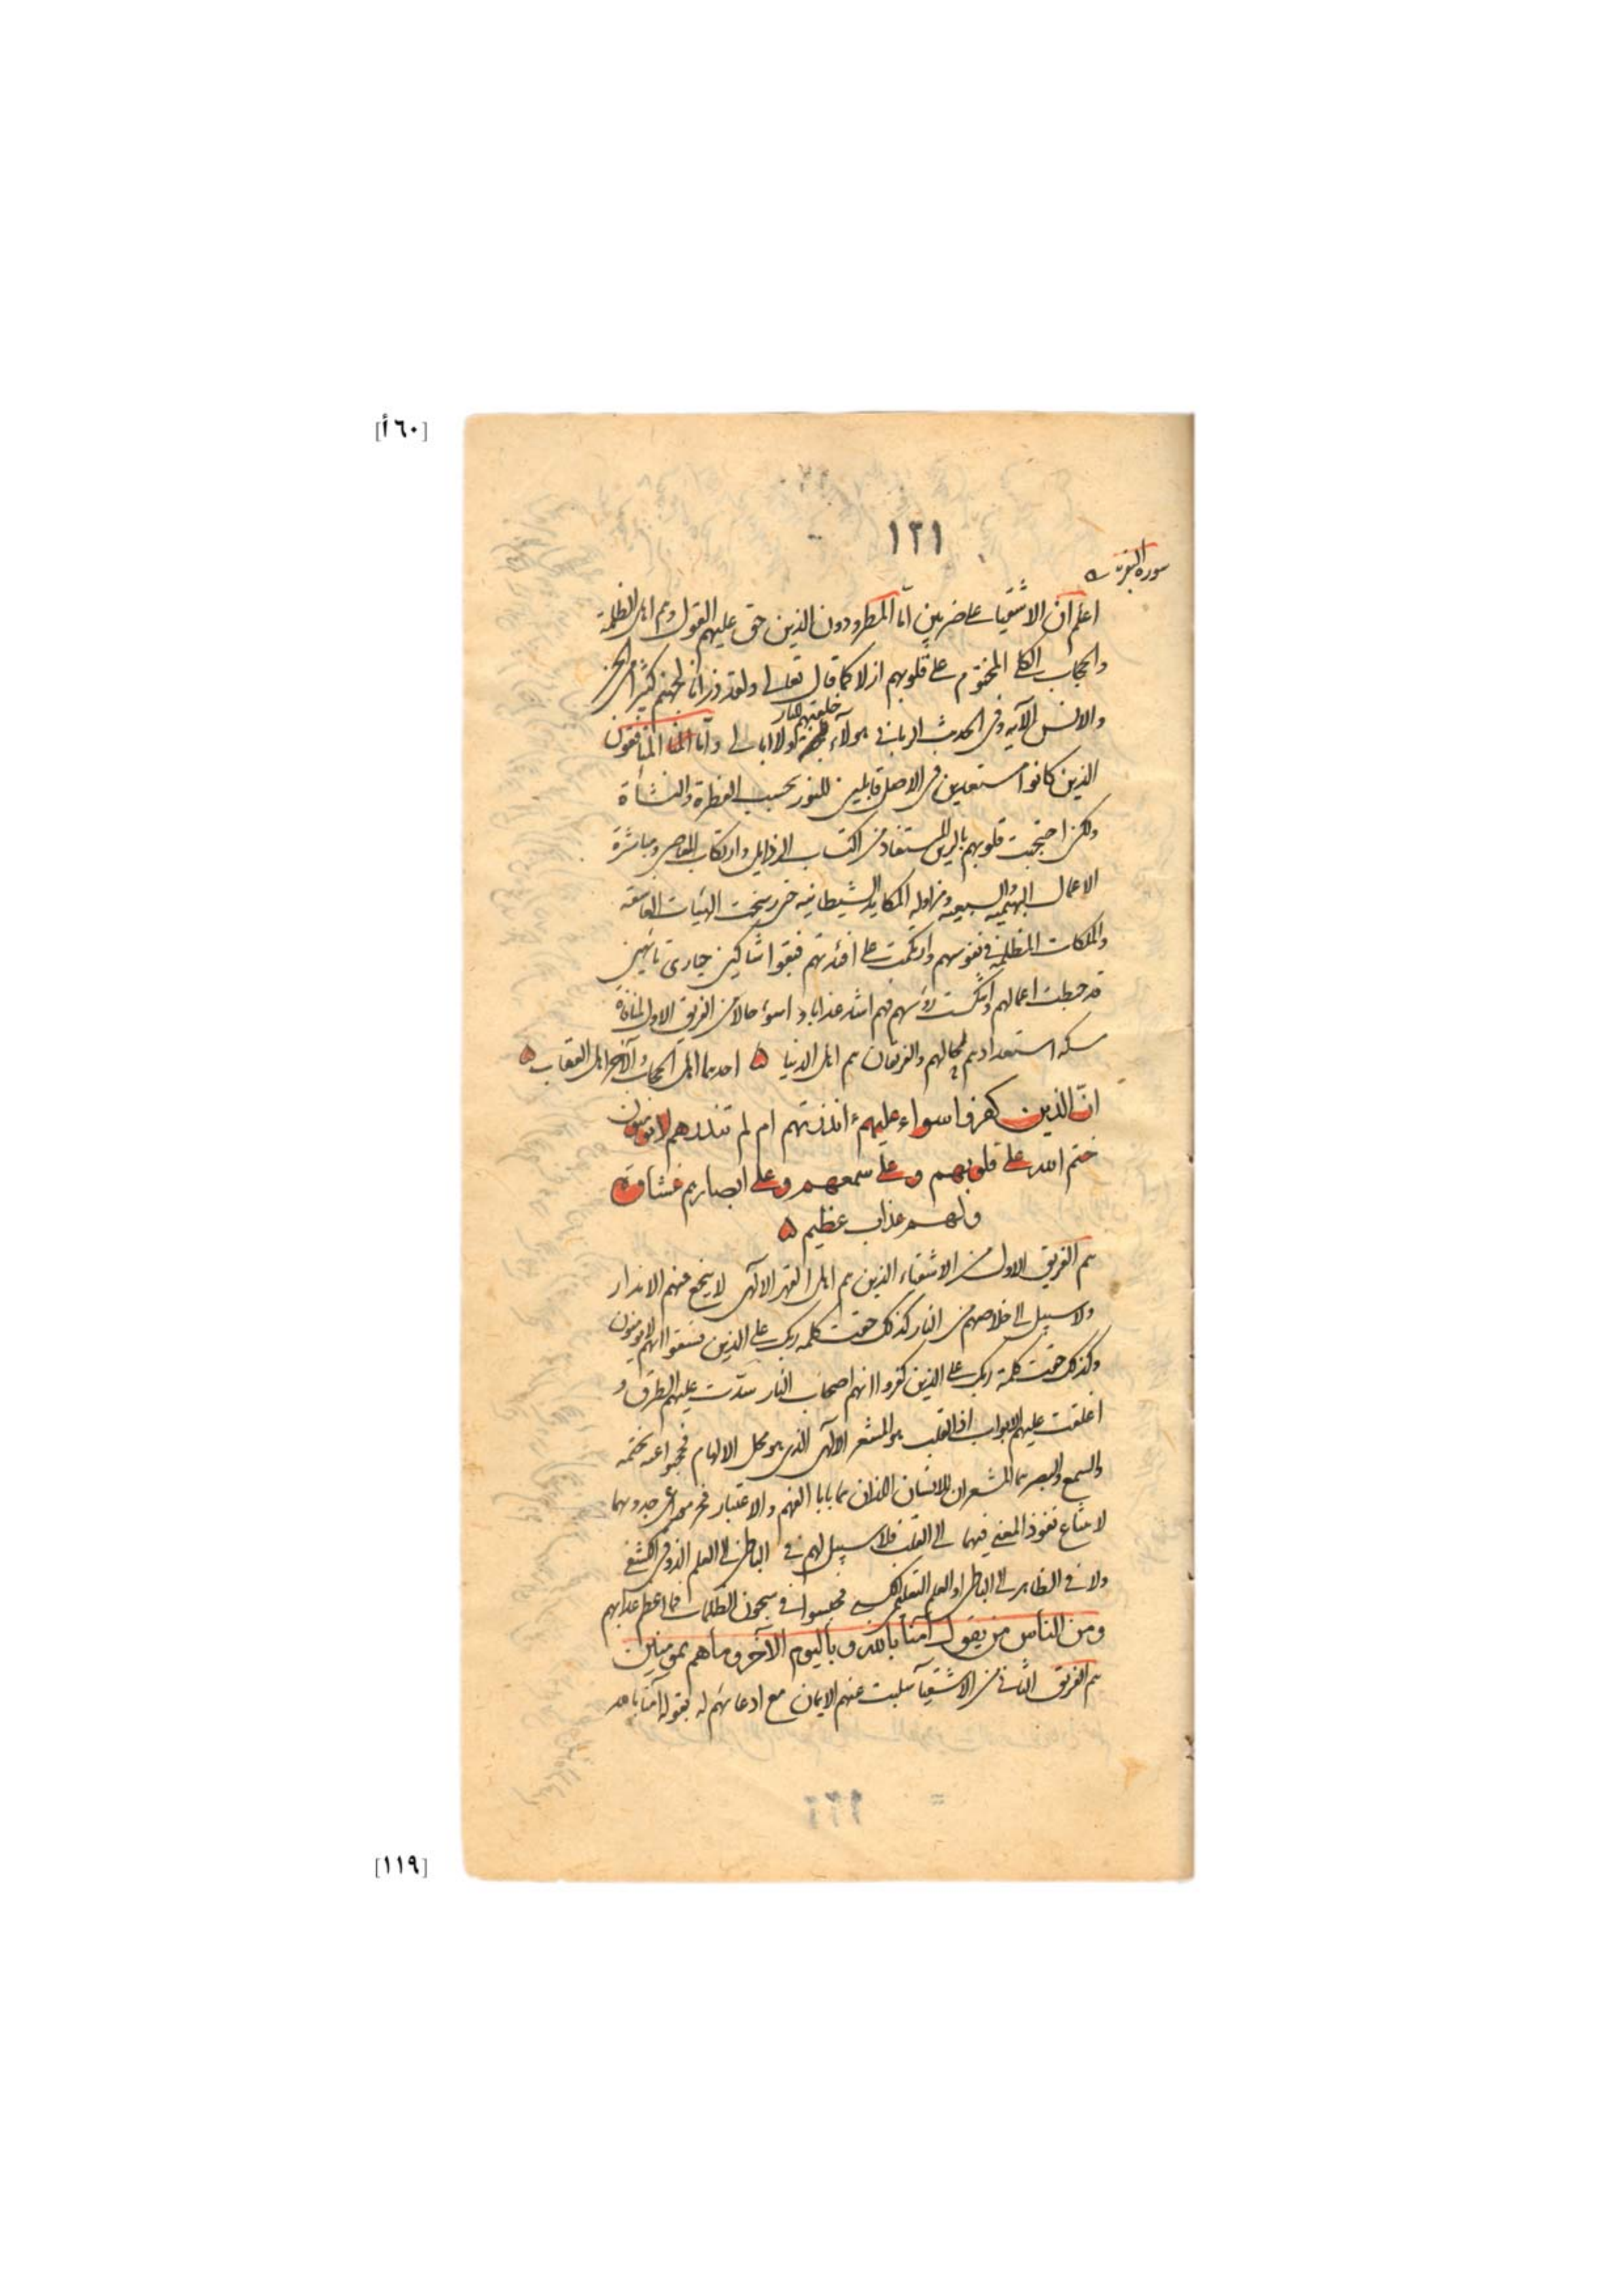 [٦٠أ]
١٢١
سورة البقرة
اعلم ان الاشقياء على ضربين اما المطرودون الذين حق عليهم القول وهم اهل الظلمة
والحجاب الكلي المختوم على قلوبهم ازلا كما قال تعالى ولقد ذرانا لجهنم كثيرا من الجن
والانس الآيه وفي الحديث الرباني هولآء خلقتهم للنار ولا ابالي واما المنافقون
الذين كانوا مستعدين في الاصل قابلين للنور بحسب الفطرة والنشأة
ولكن احتجبت قلوبهم بالرين المستفاد من اكتساب الرذايل وارتكاب المعاصي ومباشرة
الاعمال البهيميه والسبعيه ومزاولة المكايد الشيطانيه حتى رسخت الهيئات الغاسقه
والملكات المظلمة في نفوسهم وارتكمت على افئدتهم فبقوا شاكين حيارى تائهين
قد حبطت اعمالهم وانتكست رؤسهم فهم اشد عذابا واسوء حالا من الفريق الاول لمنافاة
مسكة استعدادهم لحالهم والفريقان هم اهل الدنيا ۵ احدهما اهل الحجاب والآخر اهل العقاب ۵
ان الذين كفروا سواء عليهم ءانذرتهم ام لم تنذرهم لا يومنون
ختم الله على قلوبهم وعلى سمعهم وعلى ابصارهم غشاوة
ولهم عذاب عظيم ۵
هم الفريق الاول من الاشقياء الذين هم اهل القهر الالهي لا ينجع فيهم الانذار
ولا سبيل الى خلاصهم من النار كذلك حقت كلمه ربك على الذين فسقوا انهم لا يومنون
وكذلك حقت كلمة ربك على الذين كفروا انهم اصحاب النار سدت عليهم الطرق و
اغلقت عليهم الابواب اذ القلب هو المشعر الالهي الذي هو محل الالهام فحجبوا عنه بختمه
والسمع والبصر هما المشعران للانسان اللذان هما بابا الفهم والاعتبار فحرموا عن جدوهما
لامتناع نفوذ المعنى فيهما الى القلب فلا سبيل لهم في الباطن الى العلم الذوقي الكشفي
ولا في الظاهر الى الباطن والعلم التعليمي الكسبي فحبسوا في سجون الظلمات فما اعظم عذابهم
ومن الناس من يقول آمنا بالله وباليوم الآخر وما هم بمومنين
هم الفريق الثاني من الاشقيآ سلبت عنهم الايمان مع ادعائهم له بقوله آمنا بالله
[١١٩]